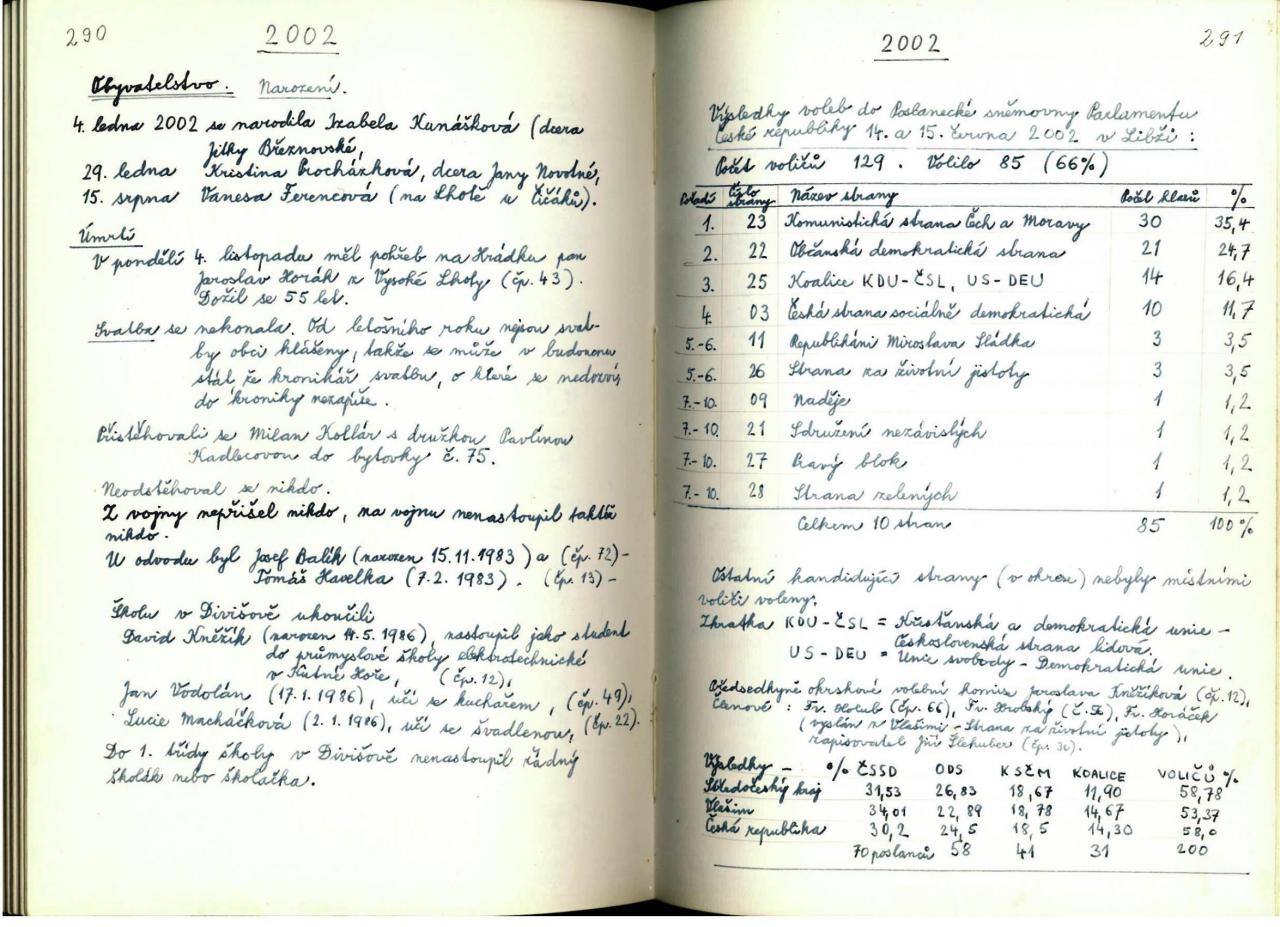 290
2002
Obyvatelstvo. Narození.
4. ledna 2002 se narodila Izabela Kunášková (dcera
Jitky Březnovské,
29. ledna Kristina Procházková, dcera Jany Novotné,
15. srpna Vanesa Ferencová (na Lhotě u Čičáků).
Úmrtí
V pondělí 4. listopadu měl pohřeb na Hrádku pan
Jaroslav Horák z Vysoké Lhoty (čp. 43).
Dožil se 55 let.
Svatba se nekonala. Od letošního roku nejsou svat-
by obci hlášeny, takže se může v budoucnu
stát že kronikář svatbu, o které se nedozví,
do kroniky nezapíše.
Přistěhovali se Milan Kollár s družkou Pavlínou
Kadlecovou do bytovky č. 75.
Neodstěhoval se nikdo.
Z vojny nepřišel nikdo, na vojnu nenastoupil taktéž
nikdo.
U odvodu byl Josef Balík (narozen 15.11.1983) a (čp. 72)-
Tomáš Havelka (7.2.1983). (čp. 13)-
Školu v Divišově ukončili
David Kněžík (narozen 14.5.1986), nastoupil jako student
do průmyslové školy elektrotechnické
v Kutné Hoře, (čp. 12),
Jan Vodolán (17.1.1986), učí se kuchařem, (čp. 49),
Lucie Macháčková (2.1.1986), učí se švadlenou, (čp. 22).
Do 1. třídy školy v Divišově nenastoupil žádný
školák nebo školačka.
291
2002
Výsledky voleb do Poslanecké sněmovny Parlamentu
České republiky 14. a 15. června 2002 v Libži:
Počet voličů 129. Volilo 85 (66%)
Pořadí Číslo strany Název strany Počet hlasů %
1. 23 Komunistická strana Čech a Moravy 30 35,4
2. 22 Občanská demokratická strana 21 24,7
3. 25 Koalice KDU-ČSL, US-DEU 14 16,4
4. 03 Česká strana sociálně demokratická 10 11,7
5.-6. 11 Republikáni Miroslava Sládka 3 3,5
5.-6. 26 Strana za životní jistoty 3 3,5
7.-10. 09 Naděje 1 1,2
7.-10. 21 Sdružení nezávislých 1 1,2
7.-10. 27 Pravý blok 1 1,2
7.-10. 28 Strana zelených 1 1,2
Celkem 10 stran 85 100%
Ostatní kandidující strany (v okrese) nebyly místními
voliči voleny.
Zkratka KDU-ČSL = Křesťanská a demokratická unie -
Československá strana lidová.
US-DEU = Unie svobody - Demokratická unie.
Předsedkyně okrskové volební komise Jaroslava Kněžíková (čp. 12),
Členové: Fr. Holub (čp. 66), Fr. Hrobský Fr. Horáček
(vyslán z Vlašimi - Strana za životní jistoty),
zapisovatel Jiří Šlehuber (čp. 30).
Výsledky - % ČSSD ODS KSČM KOALICE VOLIČŮ %
Středočeský kraj 31,53 26,83 18,67 11,90 58,78
Vlašim 34,01 22,89 18,78 14,67 53,37
Česká republika 30,2 24,5 18,5 14,30 58,0
70 poslanců 58 41 31 200